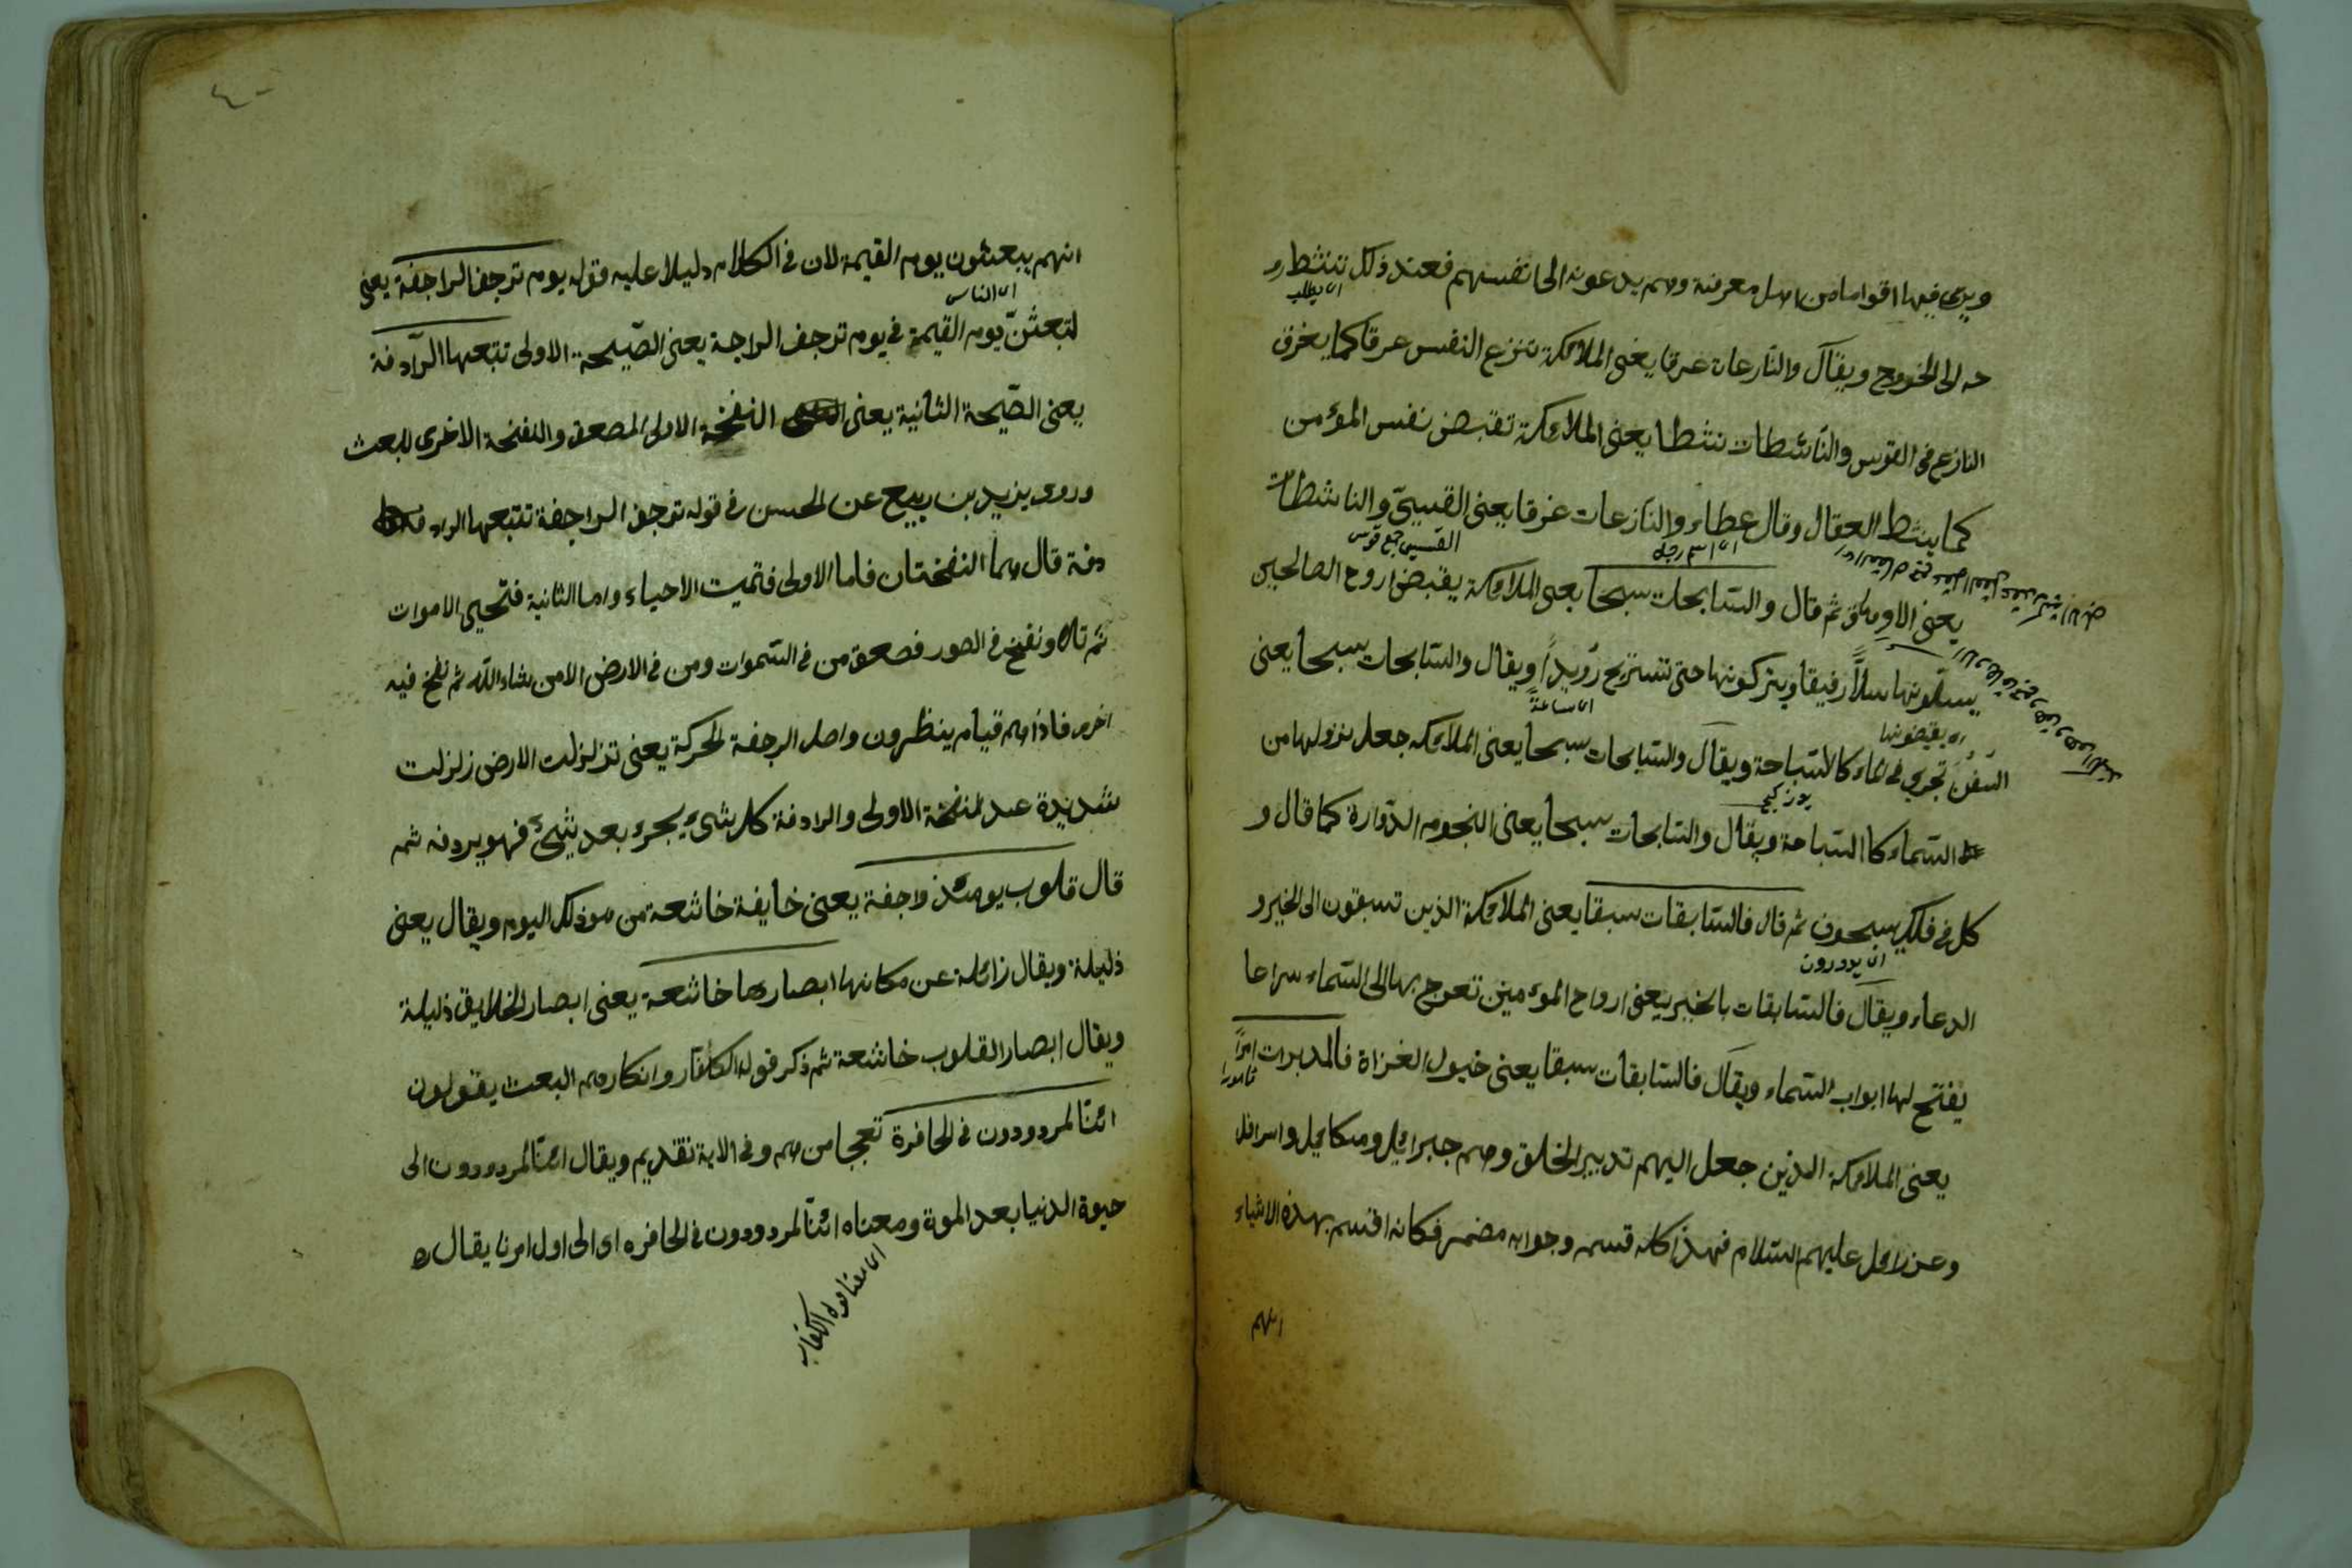 ويرى فيها اقواما من اهل معرفته وهم يدعونه الى انفسهم فعند ذلك تنشط رو
اى يطلب
حه الى الخروج ويقال والنازعات غرقا يعنى الملائكة تنزع النفس غرقا كما يغرق
النازع فى القوس والنّاشطات نشطا يعنى الملائكة تقبض نفس المؤمن
كما ينشط العقال وقال عطاء والنّازعات غرقا يعنى القسيّ والناشطات
اى اسم رجل
القسي جمع قوس
يعنى الاوهاق ثم قال والسّابحات سبحا يعنى الملائكة يقبض اروح الصالحين
يسلّونها سلاًّ رفيقا ويتركونها حتى تستريح رُوَيداً ويقال والسّابحات سبحا يعنى
اى يقبضونها
اى ساعةً
السّفُنَ تجرى فى الماء كالسّباحة ويقال والسّابحات سبحا يعنى الملائكه جعل نزولها من
السّماء كا السّباحة ويقال والسّابحات سبحا يعنى النجوم الدّوارة كما قال و
كل فى فلك يسبحون ثم قال فالسّابقات سبقا يعنى الملائكة الذين تسبقون الى الخير و
اى يدورون
الدعاء ويقال فالسّابقات بالخير يعنى ارواح المؤمنين تعرج بها الى السّماء سراعا
يفتح لها ابواب السّماء ويقال فالسّابقات سبقا يعنى خيول الغزاة فالمدبرات امراً
يعنى الملائكة الذين جعل اليهم تدبير الخلق وهم جبرائيل وميكائيل واسرافل
وعزرائل عليهم السّلام فهذا كله قسم وجوابه مضمر فكانه اقسم بهذه الاشياء
انهم
٤٠
انهم يبعثون يوم القيمة لان فى الكلام دليلا عليه قوله يوم ترجف الراجفة يعنى
اى الناس
لتبعثنّ يوم القيمة فى يوم ترجف الراجة يعنى الصّيحة الاولى تتبعها الرّادفة
يعنى الصّيحة الثانية يعنى النفخة الاولى المصعق والنفخة الاخرى للبعث
وروى يزيد بن ربيع عن الحسن فى قوله ترجف الراجفة تتبعها الرا
دفة قال هما النفختان فاما الاولى فتميت الاحياء واما الثانية فتحيى الاموات
ثم تلا ونفخ فى الصور فصعق من فى السّموات ومن فى الارض الا من شاء اللّه ثم نفخ فيه
اخرى فاذا هم قيام ينظرون واصل الرجفة الحركة يعنى تزلزلت الارض زلزلت
شديدة عند النفخة الاولى والرادفة كل شيء يجرء بعد شيء فهو يردفه ثم
قال قلوب يومئذ واجفة يعنى خايفة خاشعة من هو ذلك اليوم ويقال يعنى
ذليلة ويقال زائلة عن مكانها ابصارها خاشعة يعنى ابصار الخلايق ذليلة
ويقال ابصار القلوب خاشعة ثم ذكر قول الكفّار وانكارهم البعث يقولون
ائنّا لمردودون فى الحافرة تعجبا منهم وفى الاية تقديم ويقال ائنّا لمردودون الى
حيوة الدنيا بعد الموة ومعناه ائنّا لمردودون فى الحافره اى الى اول امرنا يقال